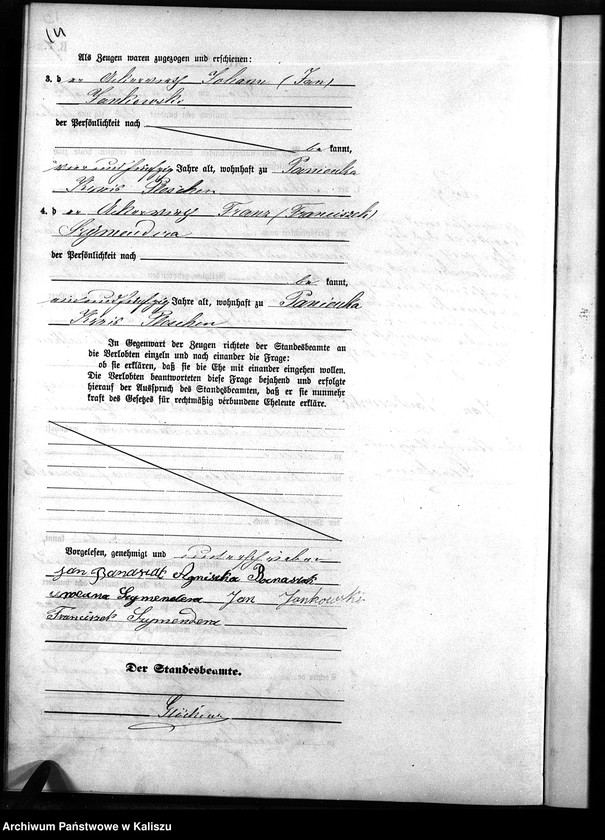 Als Zeugen waren zugezogen und erschienen:
3. d er Ackerwirth Johann (Jan)
Jankowski
der Persönlichkeit nach
be kannt,
vierundfünfzig Jahre alt, wohnhaft zu Panienka
Kreis Pleschen
4. d er Ackerwirth Franz (Franciszek)
Szymendera
der Persönlichkeit nach
be kannt,
einundfünfzig Jahre alt, wohnhaft zu Panienka
Kreis Pleschen
In Gegenwart der Zeugen richtete der Standesbeamte an
die Verlobten einzeln und nach einander die Frage:
ob sie erklären, daß sie die Ehe mit einander eingehen wollen.
Die Verlobten beantworteten diese Frage bejahend und erfolgte
hierauf der Ausspruch des Standesbeamten, daß er sie nunmehr
kraft des Gesetzes für rechtmäßig verbundene Eheleute erkläre.
Vorgelesen, genehmigt und unterschrieben
Jan Banaszak Agniszka Banaszak
Szymendera Jan Jankowski
Franciszek Szymendera
Der Standesbeamte.
Archiwum Państwowe w Kaliszu